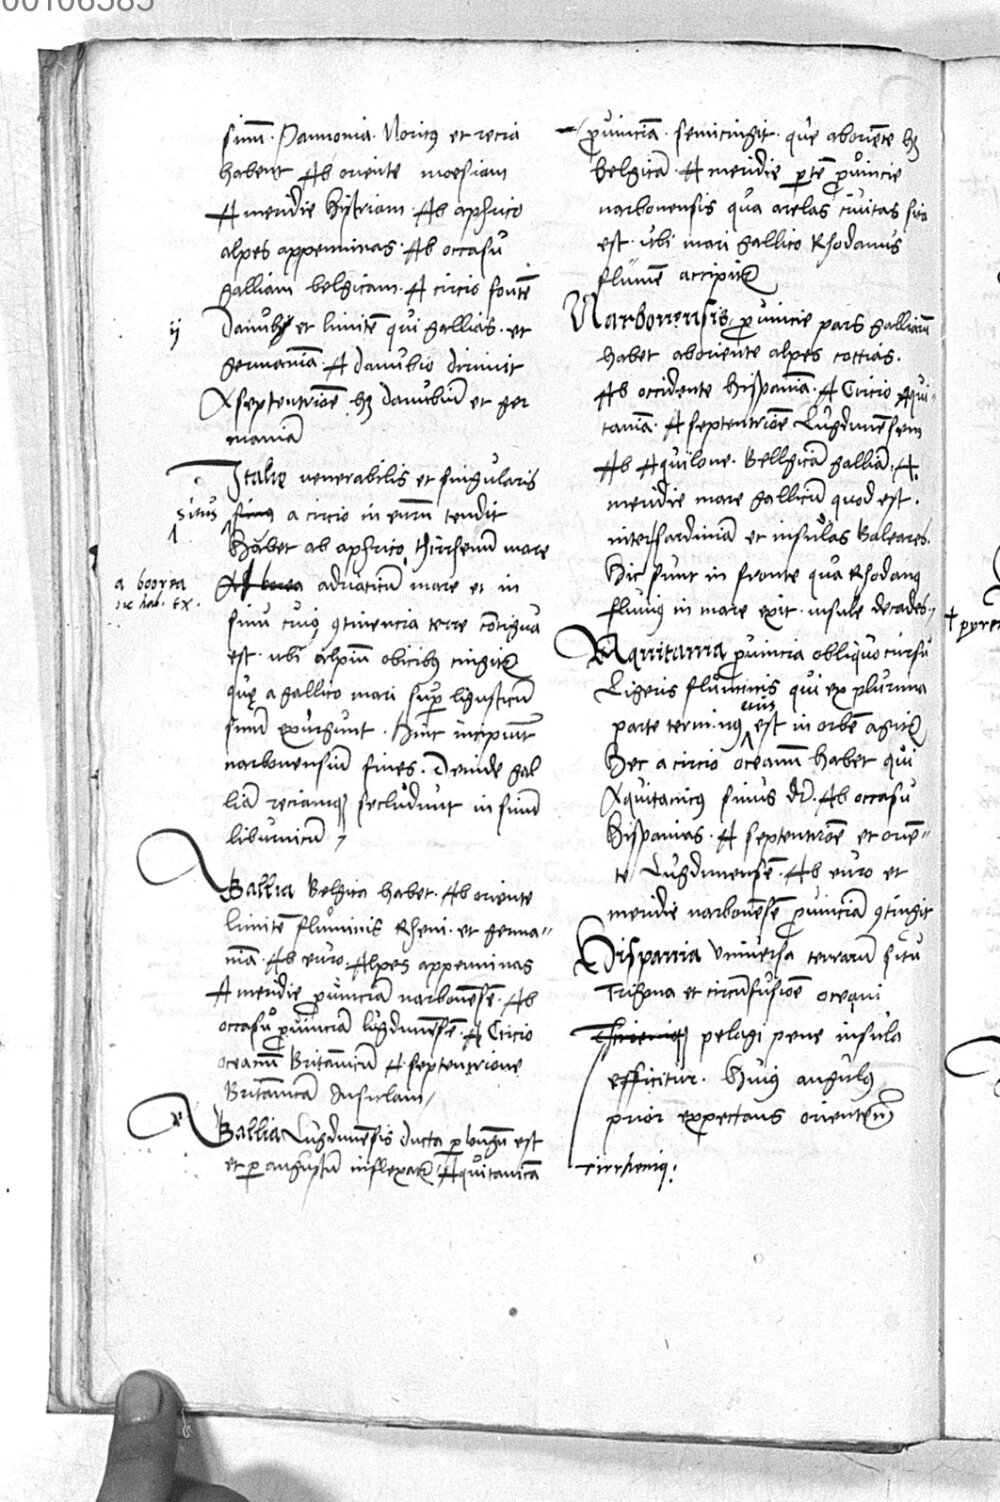 00106385
simul. Pannonia. Noricus et recia
habent Ab oriente moesiam
A meridie hystriam. Ab aphrico
alpes appenninas. Ab occasu
galliam belgicam. A circio fontē
ij
Danubij et limitē qui gallias. et
germaniā. A danubio dirimit
A septentrione hȝ danubiū et ger
maniā
Italie venerabilis et singularis
situs situs a circio in eurum tendit
Habet ab aphrico thirrhenum mare
a boorea
sic hab. ex.
Ab borea adriaticū mare et in
sinu cuius ꝯtinencia terre contigua
est. ubi alpiū obicibus cingitur
quę a gallico mari sup ligusticū
sinū exurgunt. Hinc incipiunt
narbonensiū fines. Deinde gal
liā reciamqȝ secludunt in sinū
liburnicū
Gallia Belgica habet. Ab oriente
limitē fluminis Rheni. et germa-
niā. Ab euro. Alpes appenninas
A meridie prouinciā narbonēsē. Ab
occasu prouinciā lugdunēsē. A Circio
oceanū Britannicū A septentrione
Britannicā Insulam
Gallia Lugdunēsis ducta p longū est
et p angustū inflexa Aquitanicā
prouinciā. semicingit. que aboriēte hȝ
belgicā. A meridie ptē prouincie
narbonensis qua arelas ciuitas sita
est. Vbi mari gallico Rhodanus
fluuiē accipitur
Narbonensis prouincie pars galliarū
habet aboriente alpes cottias.
Ab occidente hispaniā. A Circio Aqui-
taniā. A septentrione Lugdunēsem
Ab Aquilone. Bellgicā galliā. A
meridie mare gallicū quod est.
inter sardiniā et insulas Baleares.
Hic sunt in fronte qua Rhodanus
fluuius in mare exit. insule decades.
Aquitania prouincia obliquo cursu
Ligeris fluminis qui ex plurima
eius
parte terminus est in orbē agitur
Hec a circio oceanū habet qui
Aquitanicus sinus dr̄. Ab occasu
Hispanias. A septentrione et oriē-
te Lugdunensē. Ab euro et
meridie narbonēsē prouinciā ꝯtingit
Hispania Vniuersa terrarū situ
Trigona et circūfusiōe oceani
pelagi pene insula
efficitur. Huius angulus
prior expectans orientem
tirrheniqȝ.
† pyren